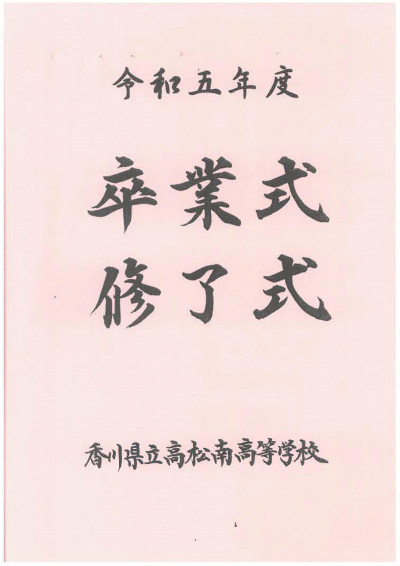 令和五年度
卒業式
修了式
香川県立高松南高等学校